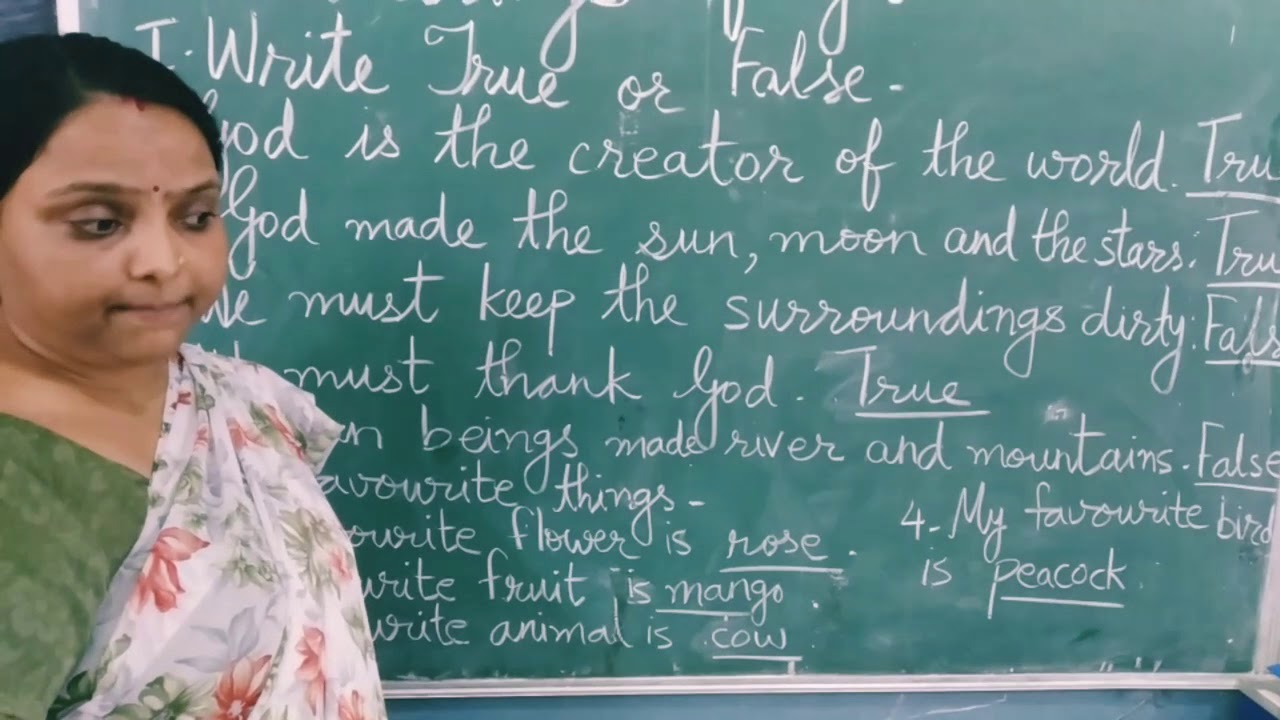 I. Write True or False.
God is the creator of the world. Tru
God made the sun, moon and the stars. Tru
We must keep the surroundings dirty. Fals
must thank God. True
an beings made river and mountains. False
avourite things-
ourite flower is rose. 4. My favourite bird
urite fruit is mango. is peacock.
urite animal is cow.